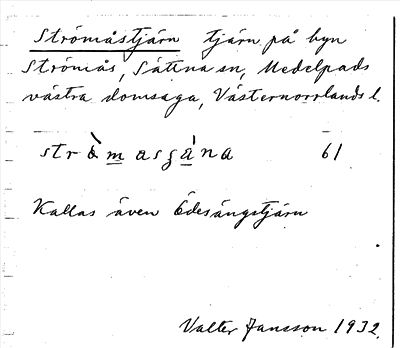 Strömåstjärn tjärn på byn
Strömås, Sättna sn, Medelpads
västra domsaga, Västernorrlands l.
strò̀masʒána 61
Kallas även Ödesängstjärn
Valter Jansson 1932.